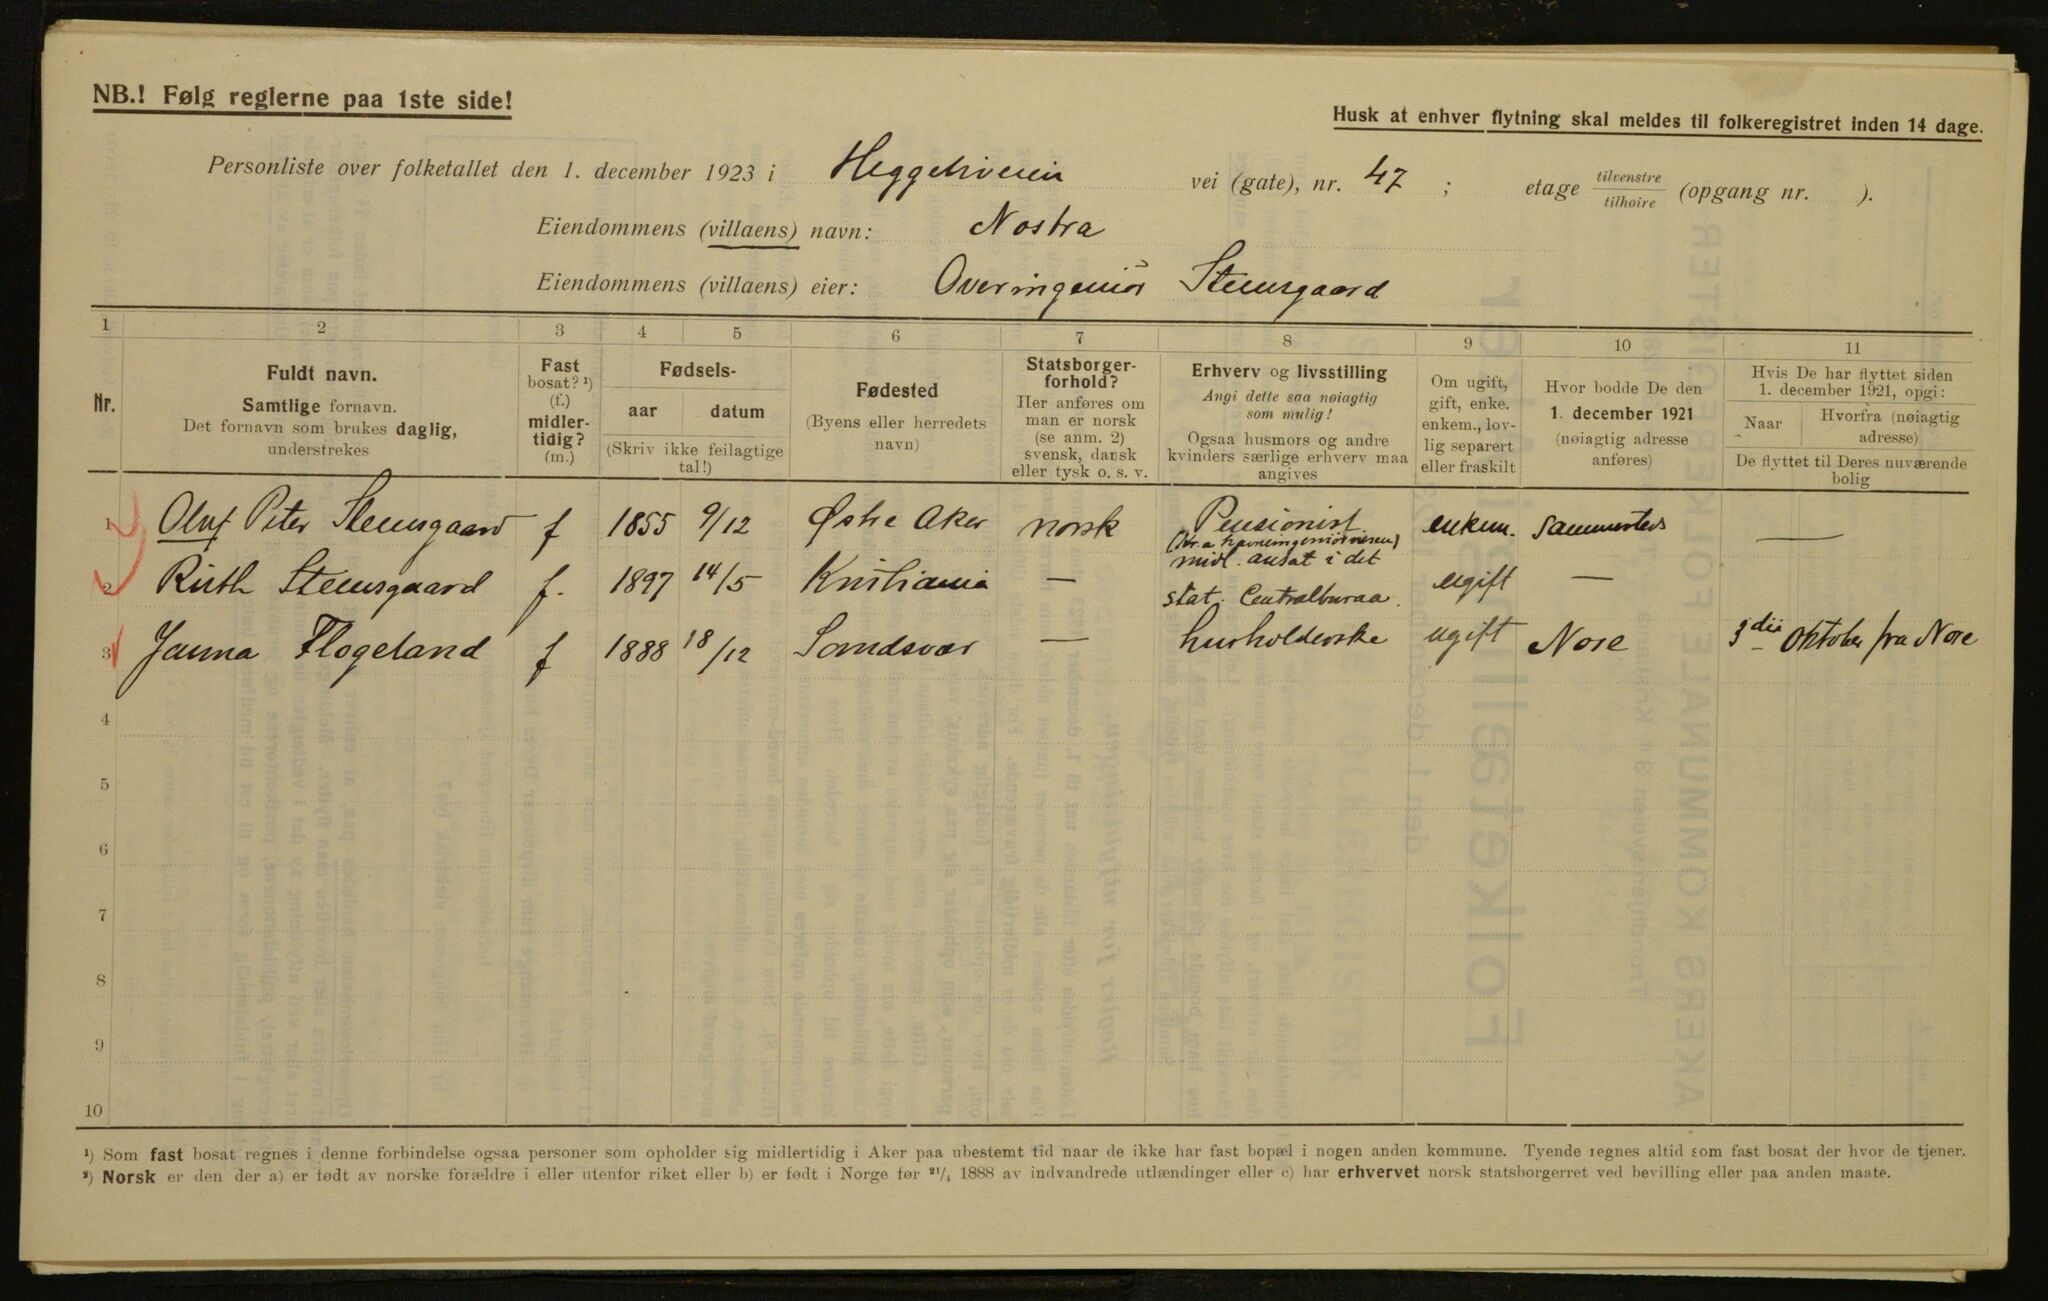 NB.! Følg reglerne paa 1ste side!
Husk at enhver flytning skal meldes til folkeregistret inden 14 dage.
Personliste over folketallet den 1. december 1923 i Heggeliveien vei (gate), nr. 47 ; etage tilvenstre/tilhøire (opgang nr. ).
Eiendommens (villaens) navn: Nostra
Eiendommens (villaens) eier: Overingeniør Steensgaard
1 2 3 4 5 6 7 8 9 10 11
Nr.
Fuldt navn.
Samtlige fornavn.
Det fornavn som brukes daglig,
understrekes
Fast
bosat? ¹)
(f.)
midler-
tidig?
(m.)
Fødsels-
aar datum
(Skriv ikke feilagtige
tal!)
Fødested
(Byens eller herredets
navn)
Statsborger-
forhold?
Her anføres om
man er norsk
(se anm. 2)
svensk, dansk
eller tysk o. s. v.
Erhverv og livsstilling
Angi dette saa nøiagtig
som mulig!
Ogsaa husmors og andre
kvinders særlige erhverv maa
angives
Om ugift,
gift, enke.
enkem., lov-
lig separert
eller fraskilt
Hvor bodde De den
1. december 1921
(nøiagtig adresse
anføres)
Hvis De har flyttet siden
1. december 1921, opgi:
Naar Hvorfra (nøiagtig
adresse)
De flyttet til Deres nuværende
bolig
1 Oluf Peter Steensgaard f 1855 9/12 Østre Aker norsk Pensionist enkem. Sammesteds —
midl. ansat i det
2 Ruth Steensgaard f. 1897 14/5 Kristiania — stat. Centralburaa. ugift —
3 Janna Flogeland f 1888 18/12 Sandsvær — husholderske ugift Nore 3die Oktober fra Nore
4
5
6
7
8
9
10
¹) Som fast bosat regnes i denne forbindelse ogsaa personer som opholder sig midlertidig i Aker paa ubestemt tid naar de ikke har fast bopæl i nogen anden kommune. Tyende regnes altid som fast bosat der hvor de tjener.
²) Norsk er den der a) er født av norske forældre i eller utenfor riket eller b) er født i Norge før ²¹/₄ 1888 av indvandrede utlændinger eller c) har erhvervet norsk statsborgerret ved bevilling eller paa anden maate.